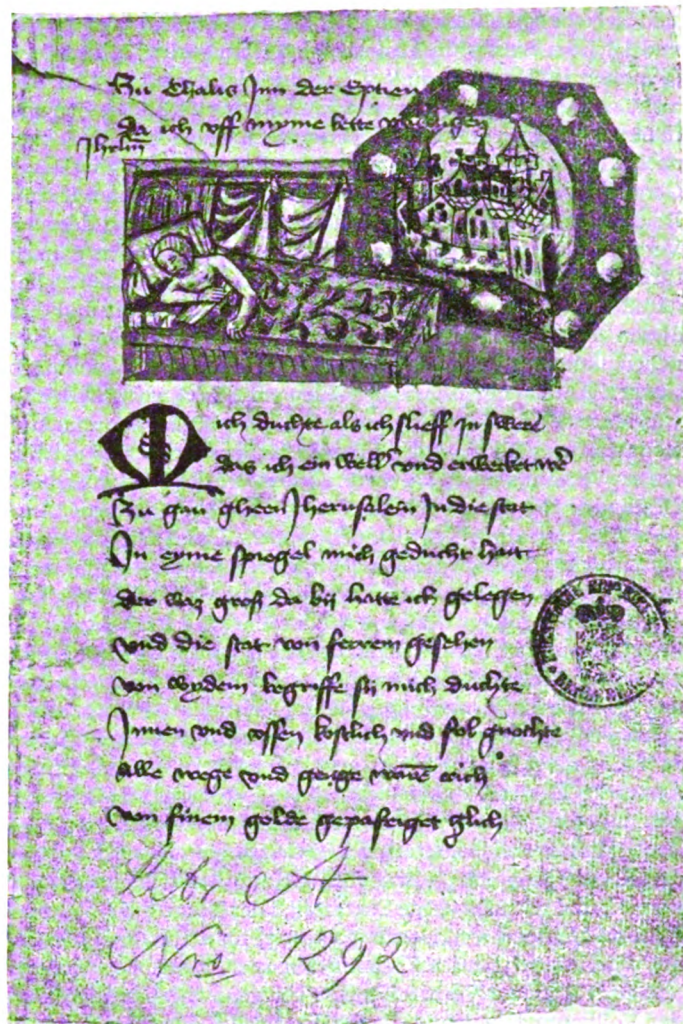 Zu Chalis Inn der Eptien
da ich uff myme bette was gelegen
Jhrlm
Mich duchte als ich slieff In swere
das ich ein weller und erwecket were
Zu gan gheen Jherusalem In die stat
In eyme spiegel mich geducht hatt
der waz groß da bij hatte ich gelegen
und die stat von ferrem gesehen
von wydem begriffe sij mich duchte
Innen und ussen kostlich und fol
Alle wege und genge waren rich
von finem golde gepafeiget glich
Litr A
Nro 1292